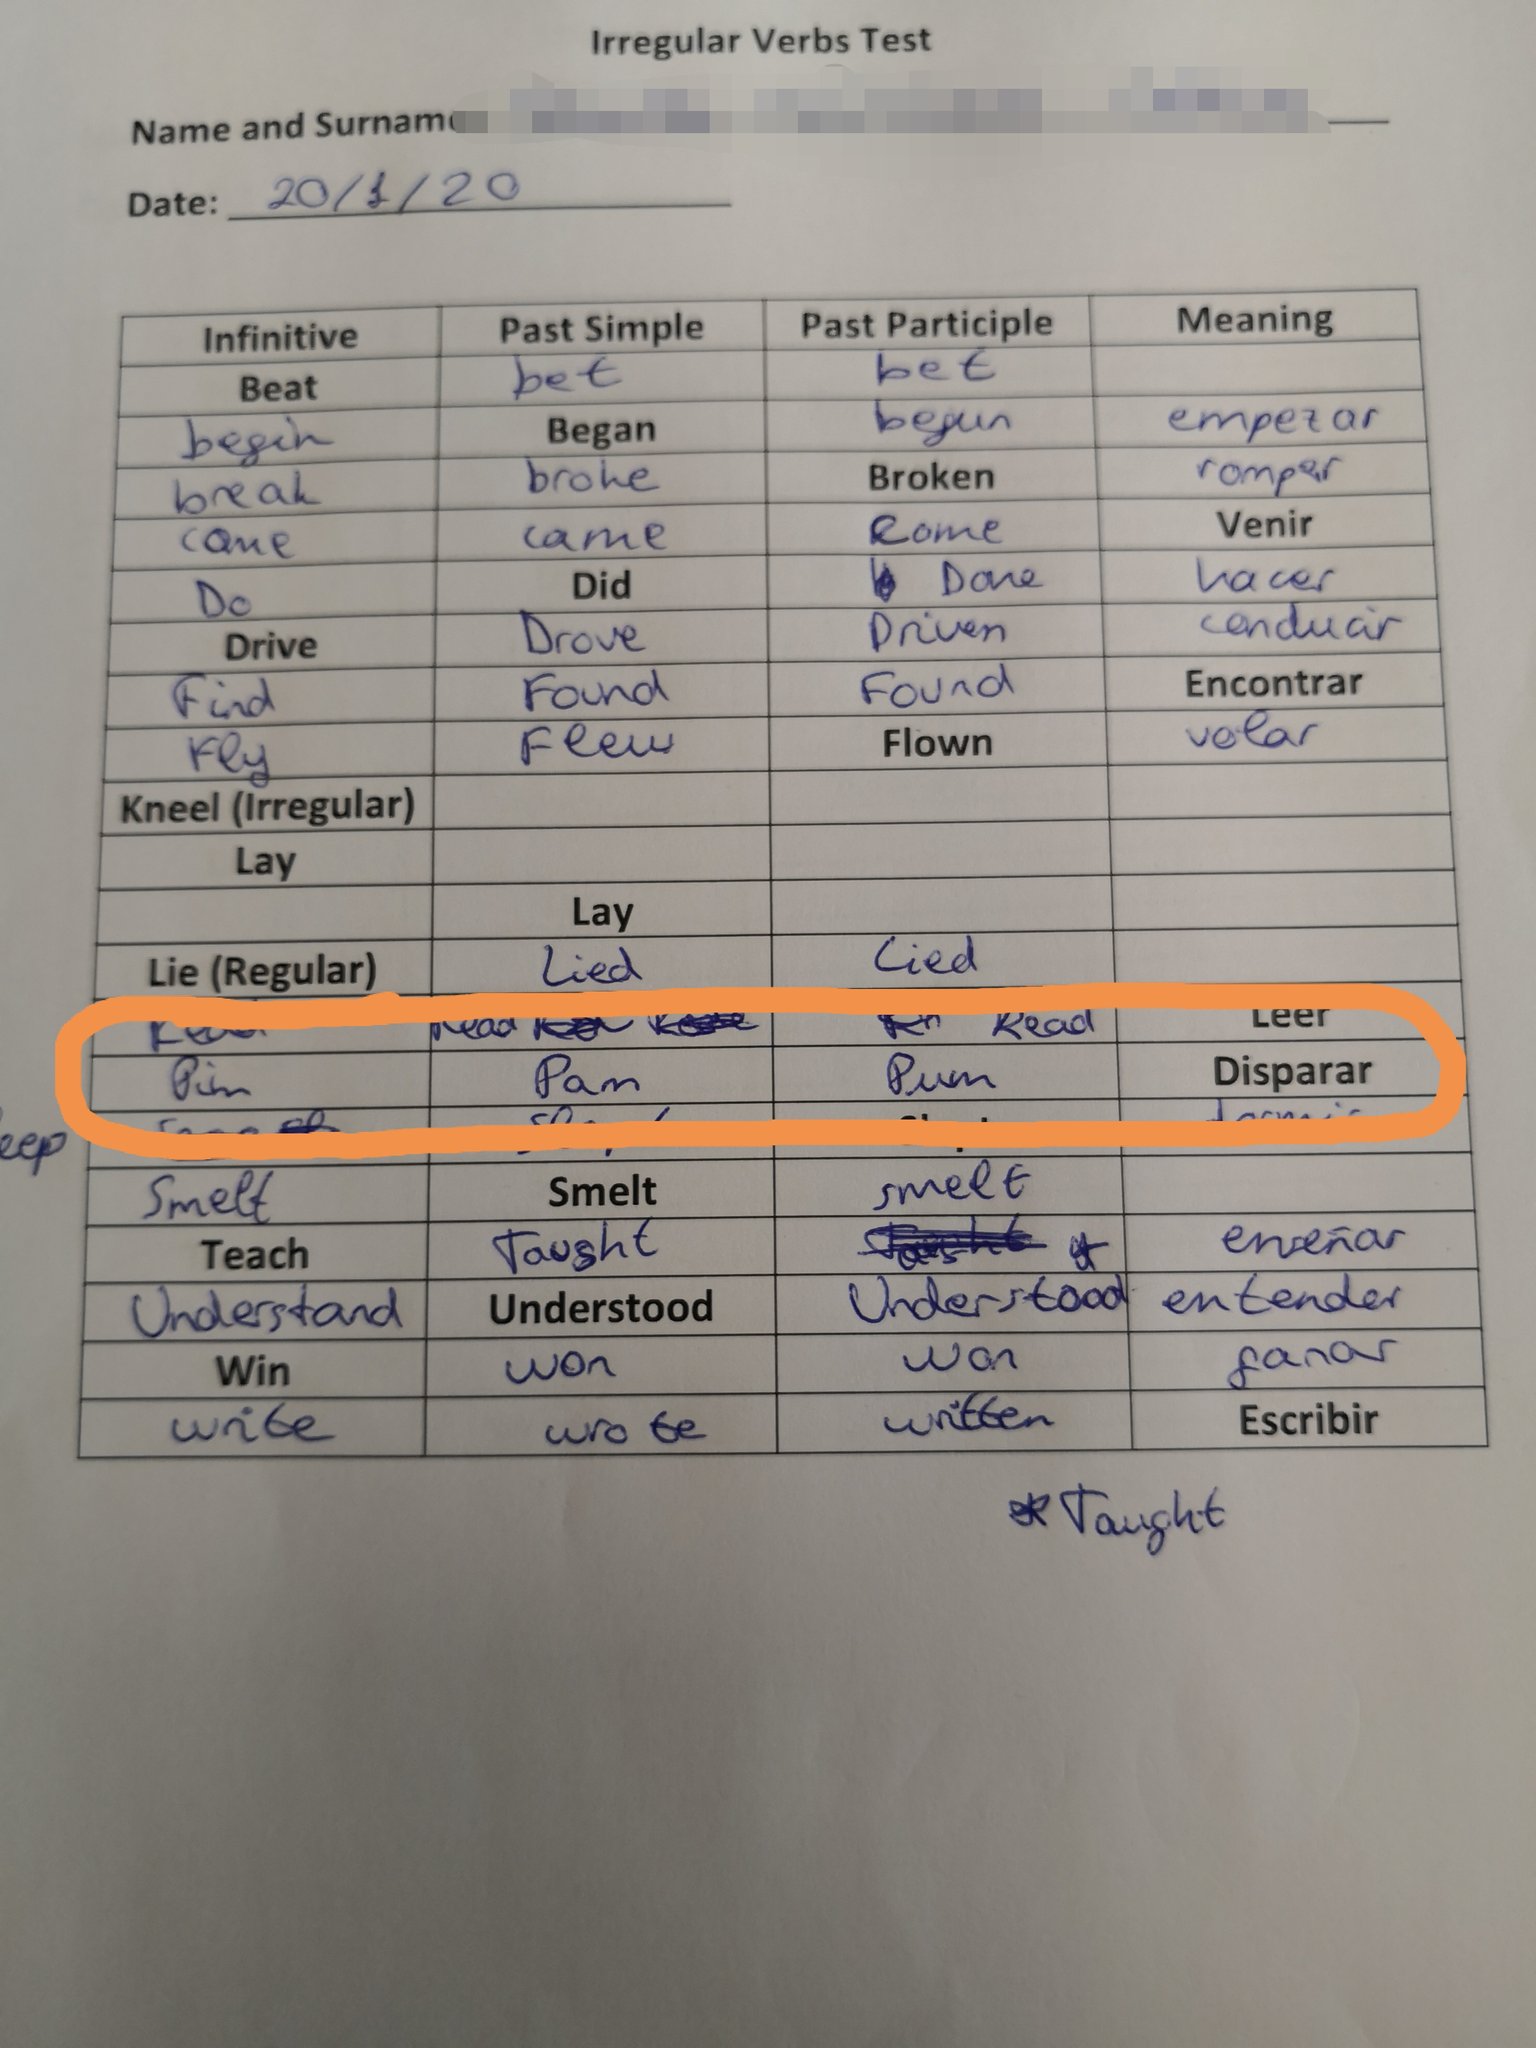 Irregular Verbs Test
Name and Surname
Date: 20/1/20
Infinitive Past Simple Past Participle Meaning
Beat bet bet
begin Began begun empezar
break broke Broken romper
come came come Venir
Do Did Done hacer
Drive Drove Driven conducir
Find Found Found Encontrar
Fly Flew Flown volar
Kneel (Irregular)
Lay
Lay
Lie (Regular) Lied Lied
Read Read Read Leer
Pim Pam Pum Disparar
dormir
Smelt Smelt smelt
Teach Taught * enseñar
Understand Understood Understood entender
Win won won ganar
write wrote written Escribir
* Taught